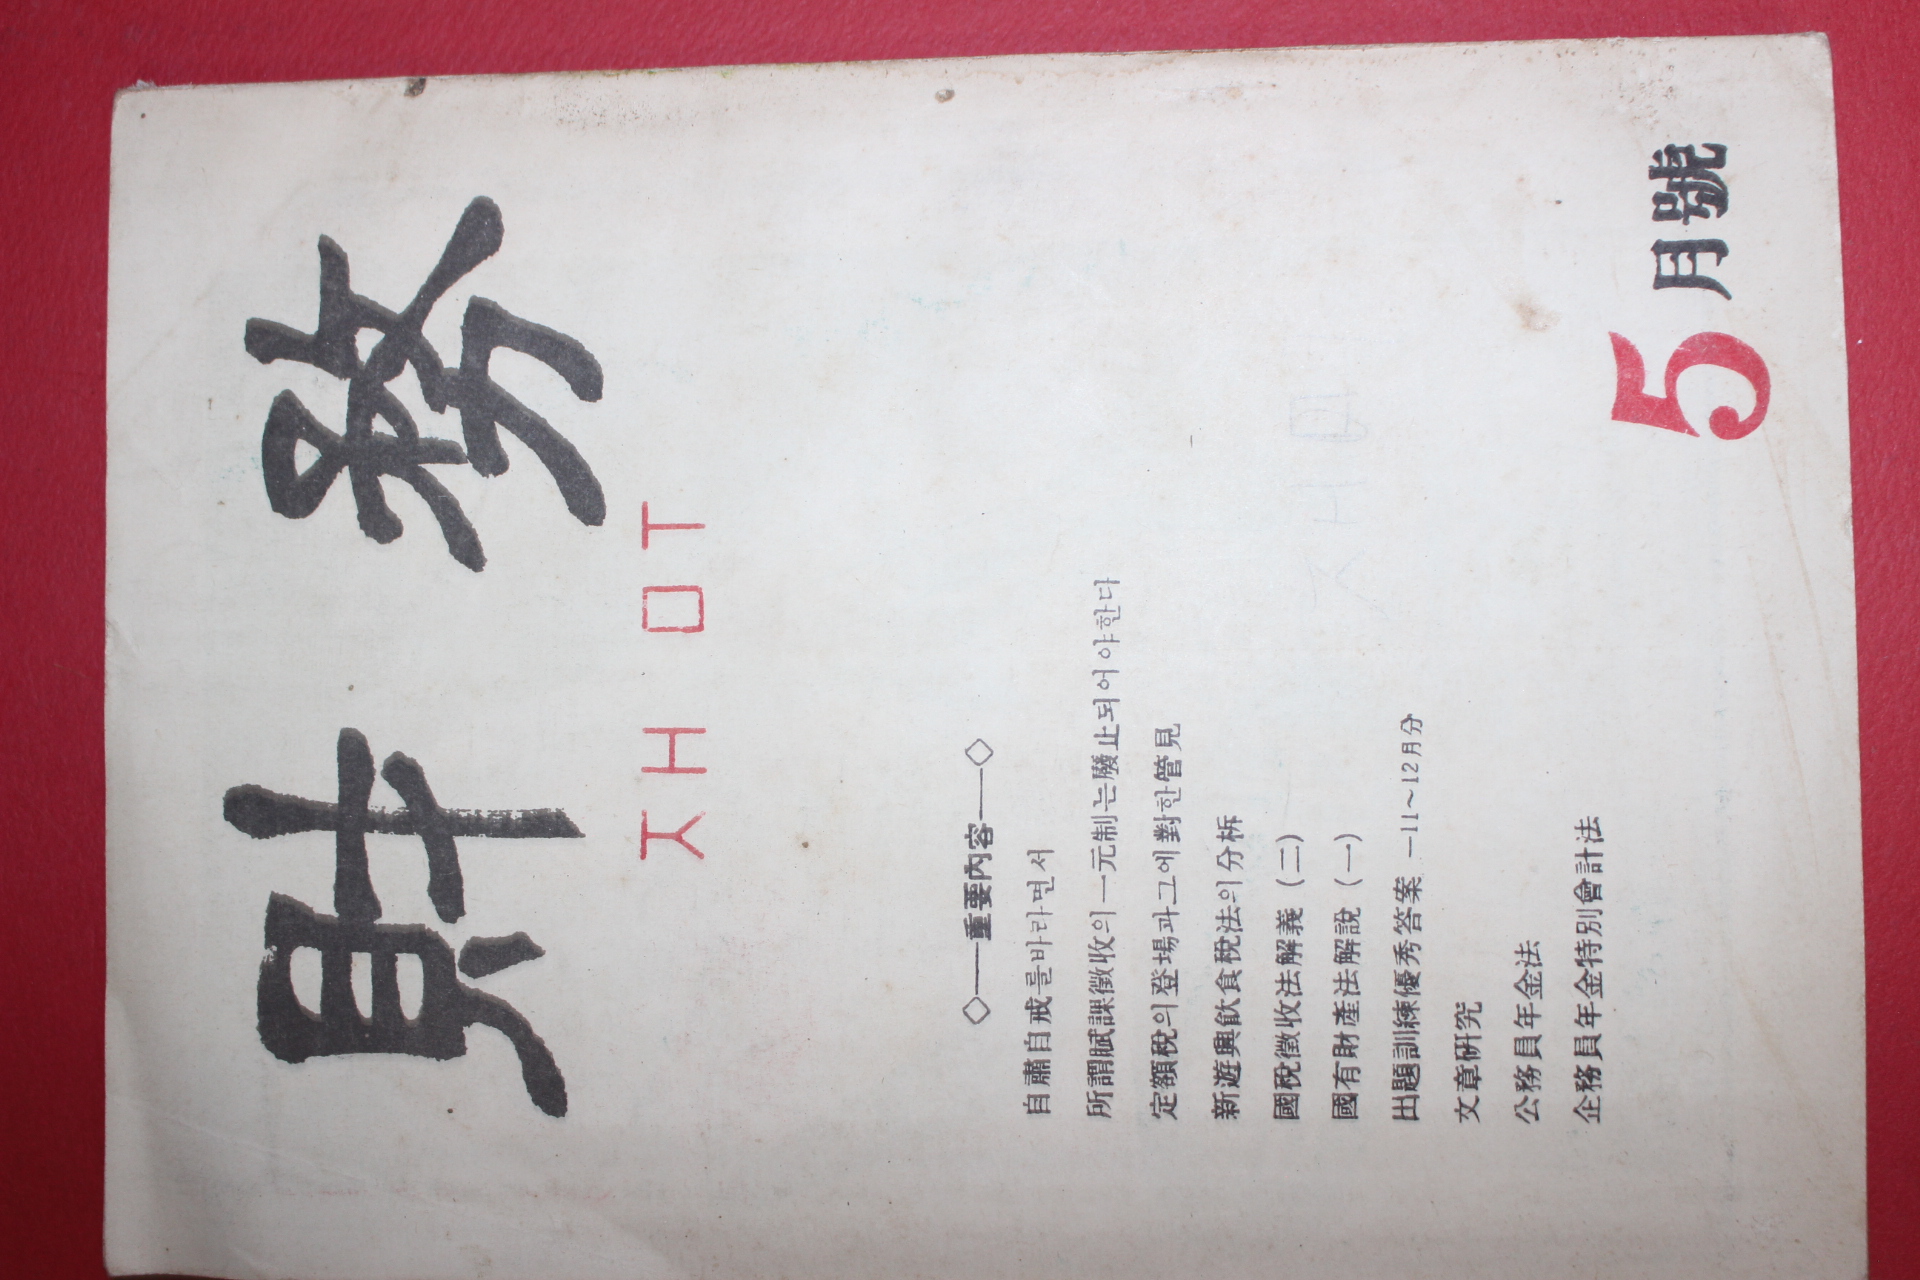 財務
ㅈㅐㅁㅜ
◇——重要內容——◇
自肅自戒를바라면서
所謂賦課徵收의一元制는廢止되어야한다
定額稅의登場과그에對한管見
新遊興飮食稅法의分析
國稅徵收法解義 (二)
國有財產法解說 (一)
出題訓練優秀答案 —11~12月分
文章硏究
公務員年金法
企務員年金特別會計法
5月號